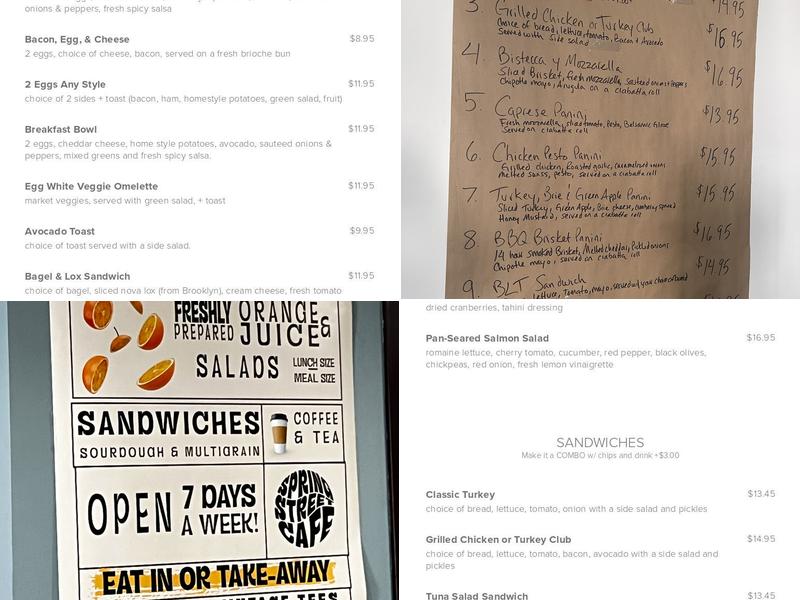 onions & peppers, fresh spicy salsa
Bacon, Egg, & Cheese $8.95
2 eggs, choice of cheese, bacon, served on a fresh brioche bun
2 Eggs Any Style $11.95
choice of 2 sides + toast (bacon, ham, homestyle potatoes, green salad, fruit)
Breakfast Bowl $11.95
2 eggs, cheddar cheese, home style potatoes, avocado, sauteed onions &
peppers, mixed greens and fresh spicy salsa.
Egg White Veggie Omelette $11.95
market veggies, served with green salad, + toast
Avocado Toast $9.95
choice of toast served with a side salad.
Bagel & Lox Sandwich $11.95
choice of bagel, sliced nova lox (from Brooklyn), cream cheese, fresh tomato
3. Grilled Chicken or Turkey Club $16.95
Choice of bread, lettuce, tomato, Bacon & Avocado
Served with side salad
4. Bistecca y Mozzarella $16.95
Sliced Brisket, fresh mozzarella, sauteed onions + Peppers
Chipotle mayo, Arugula on a ciabatta roll
5. Caprese Panini $13.95
Fresh mozzarella, sliced tomato, Pesto, Balsamic Glaze
Served on ciabatta roll
6. Chicken Pesto Panini $15.95
Grilled chicken, Roasted garlic, caramelized onions
melted swiss, pesto, served on a ciabatta roll
7. Turkey, Brie & Green Apple Panini $15.95
Sliced Turkey, Green Apple, Brie cheese, cranberry spread
Honey Mustard, served on a ciabatta roll
8. BBQ Brisket Panini $16.95
14 hour smoked Brisket, Melted cheddar, Pickled onions
Chipotle mayo, served on ciabatta roll
9. BLT Sandwich $14.95
lettuce, Tomato, mayo, served w/ your choice of bread
FRESHLY PREPARED ORANGE JUICE &
SALADS LUNCH SIZE
MEAL SIZE
SANDWICHES
SOURDOUGH & MULTIGRAIN
COFFEE
& TEA
OPEN 7 DAYS
A WEEK!
SPRING
STREET
CAFE
EAT IN OR TAKE-AWAY
dried cranberries, tahini dressing
Pan-Seared Salmon Salad $16.95
romaine lettuce, cherry tomato, cucumber, red pepper, black olives,
chickpeas, red onion, fresh lemon vinaigrette
SANDWICHES
Make it a COMBO w/ chips and drink +$3.00
Classic Turkey $13.45
choice of bread, lettuce, tomato, onion with a side salad and pickles
Grilled Chicken or Turkey Club $14.95
choice of bread, lettuce, tomato, bacon, avocado with a side salad and
pickles
Tuna Salad Sandwich $13.45